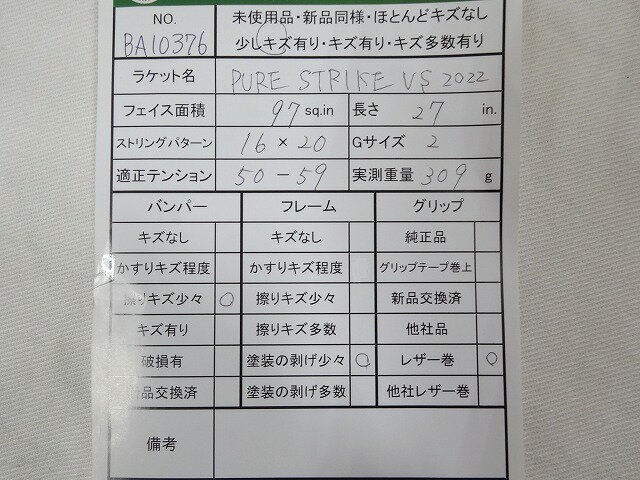 NO. 未使用品・新品同様・ほとんどキズなし
BA10376 少しキズ有り・キズ有り・キズ多数有り
ラケット名 PURE STRIKE VS 2022
フェイス面積 97 sq.in 長さ 27 in.
ストリングパターン 16 × 20 Gサイズ 2
適正テンション 50 - 59 実測重量 309 g
バンパー フレーム グリップ
キズなし キズなし 純正品
かすりキズ程度 かすりキズ程度 グリップテープ巻上
擦りキズ少々 ○ 擦りキズ少々 新品交換済
キズ有り 擦りキズ多数 他社品
破損有 塗装の剥げ少々 ○ レザー巻 ○
新品交換済 塗装の剥げ多数 他社レザー巻
備考